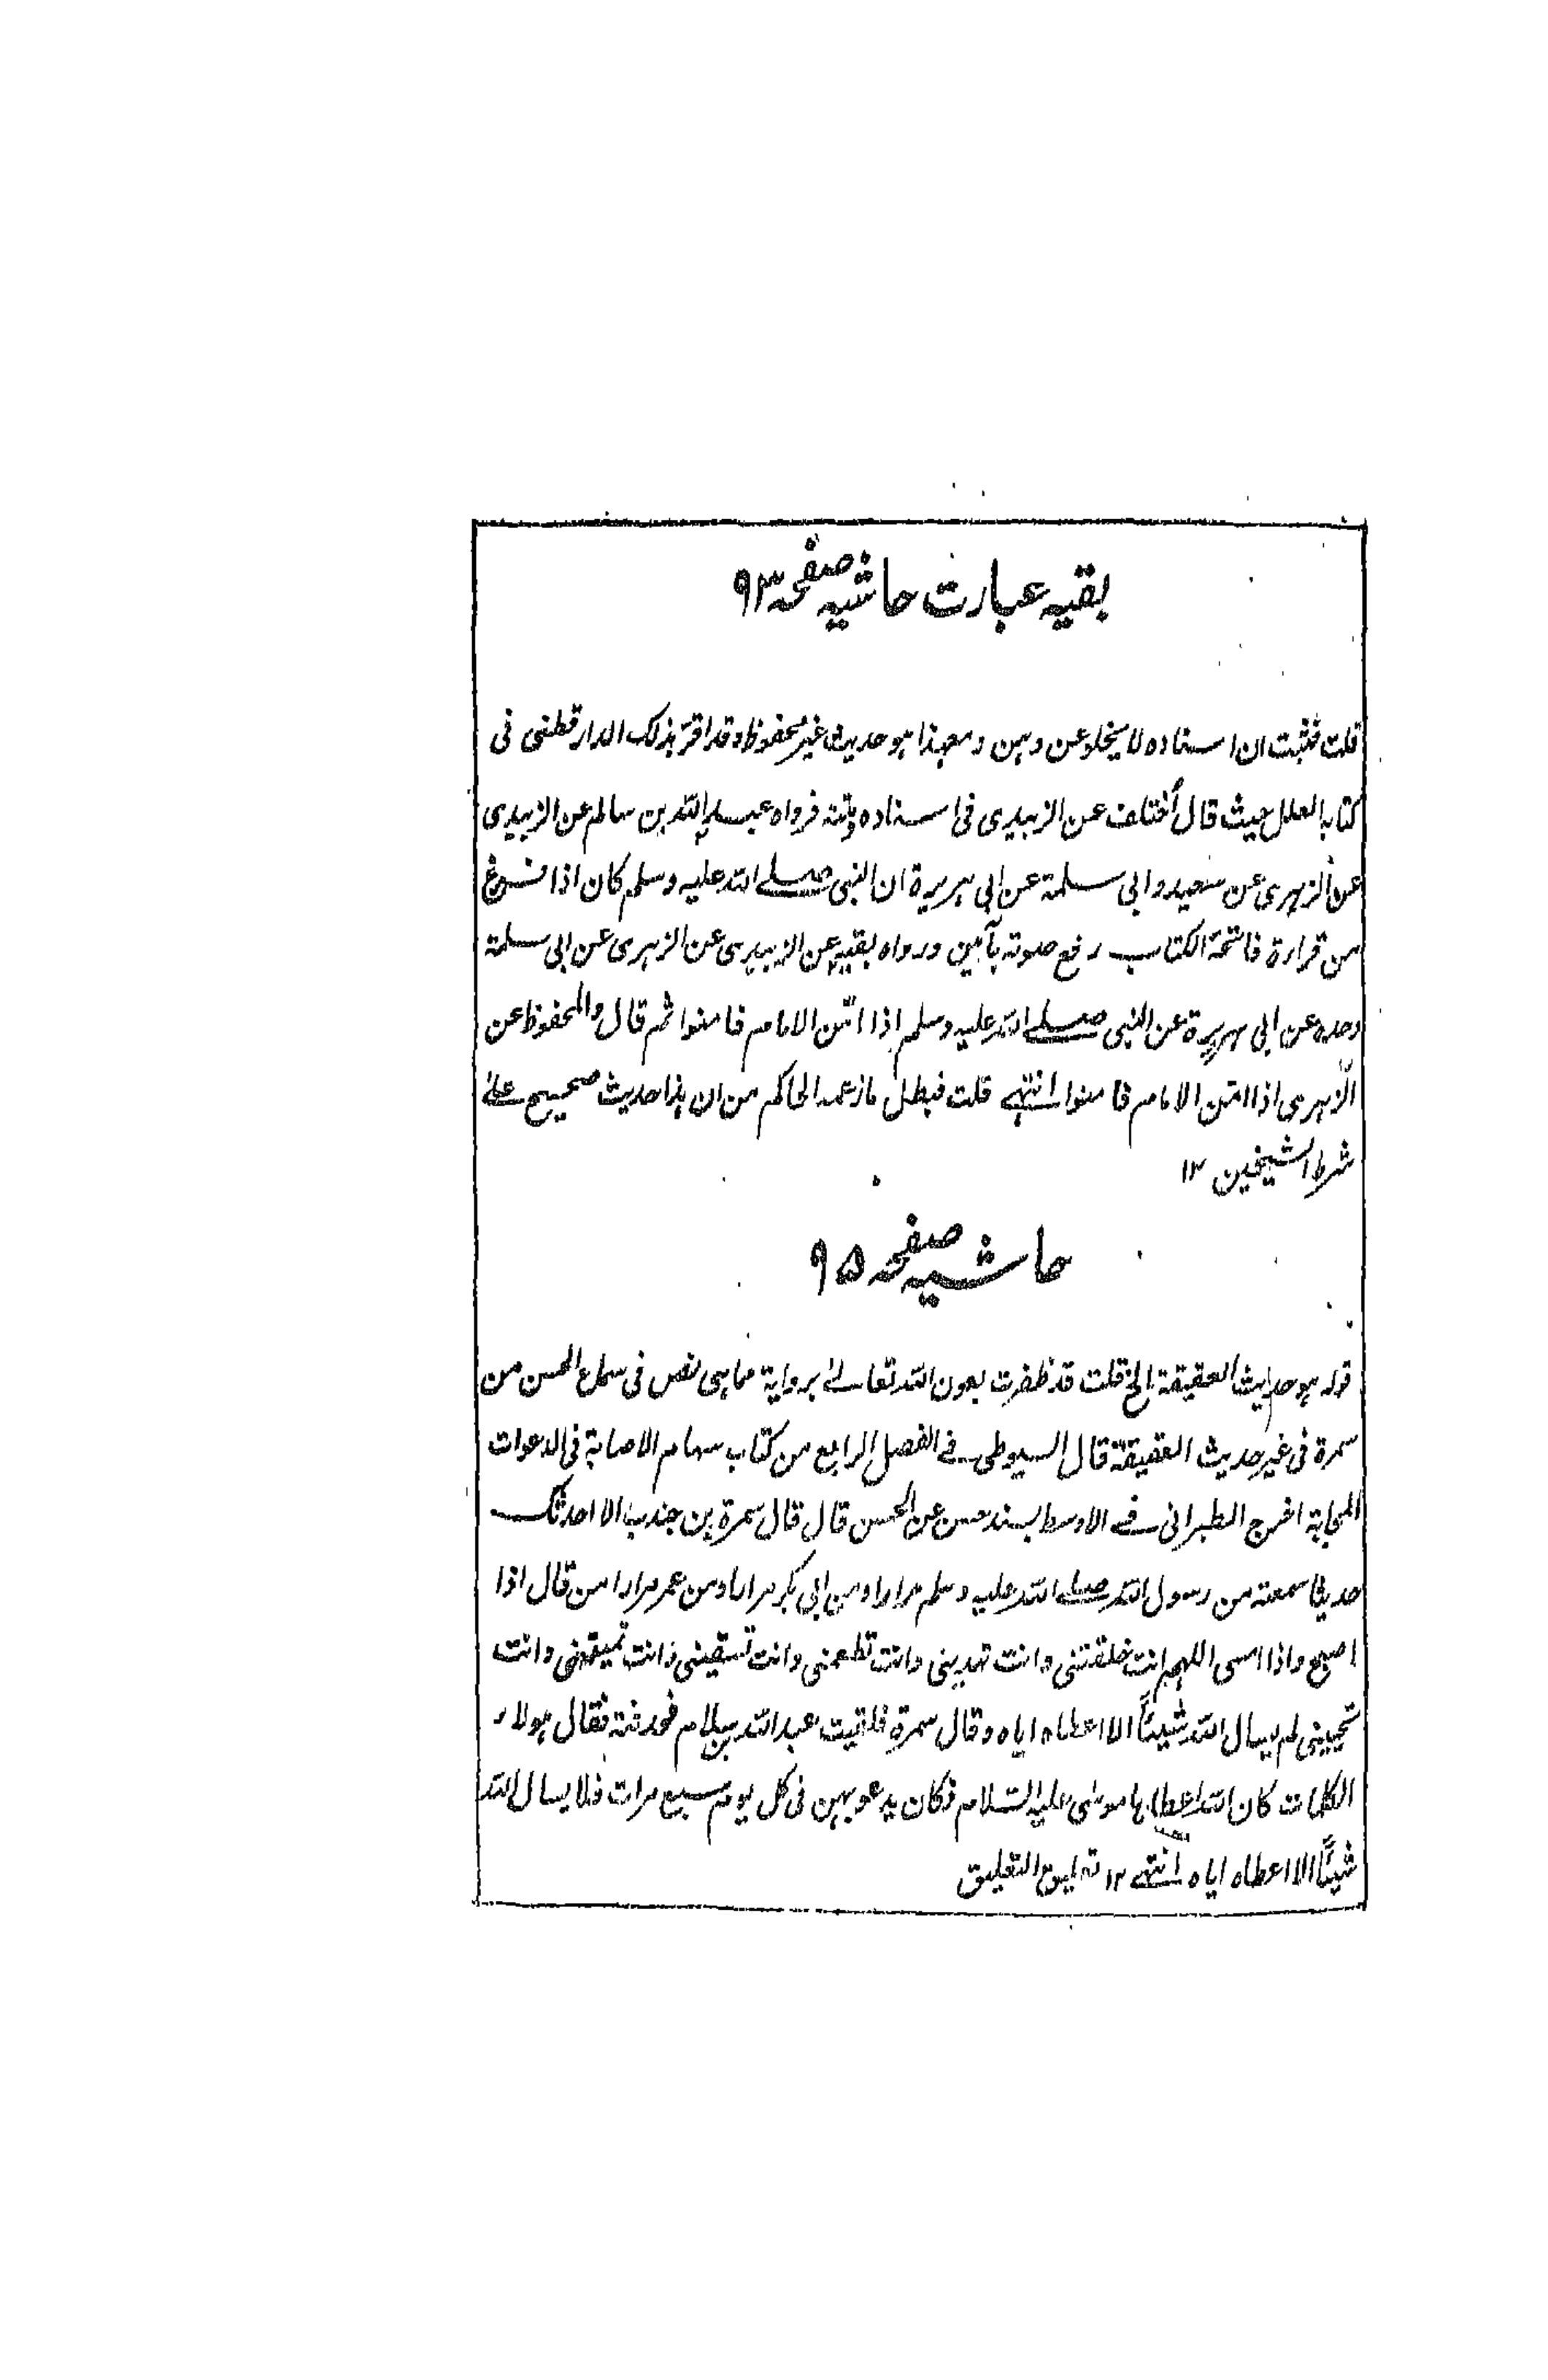 بقیہ عبارت حاشیہ صفحہ ۹۳
قلت فثبت ان اسناده لا يخلو عن وہن و معہذا ہو حدیث غیر محفوظ وقد اقرّ بذلک الدارقطنی فی
کتاب العلل حیث قال اختلف عن الزبیدی فی اسناده ومتنہ فرواه عبد اللہ بن سالم عن الزبیدی
عن الزہری عن سعید و ابی سلمۃ عن ابی ہریرۃ ان النبی صلے اللہ علیہ وسلم کان اذا فرغ
من قراءۃ فاتحۃ الکتاب رفع صوتہ بآمین و رواه بقیہ عن الزبیدی عن الزہری عن ابی سلمۃ
وحده عن ابی ہریرۃ عن النبی صلے اللہ علیہ وسلم اذا امّن الامام فامنوا ثم قال والمحفوظ عن
الزہری اذا امّن الامام فامنوا انتہے قلت فبطل ما زعمہ الحاکم من ان ہذا حدیث صحیح علے
شرط الشیخین ۱۲
حاشیہ صفحہ ۹۵
قولہ ہو حدیث العقیقۃ الخ قلت قد ظفرت بعون اللہ تعالےٰ بروایۃ مما ہی نص فی سماع الحسن من
سمرۃ فی غیر حدیث العقیقۃ قال السیوطی فے الفصل الرابع من کتاب سہام الاصابۃ فی الدعوات
المجابۃ اخرج الطبرانی فے الاوسط بسند حسن عن الحسن قال قال سمرۃ بن جندب الا احدثک
حدیثا سمعتہ من رسول اللہ صلے اللہ علیہ وسلم مرارا ومن ابی بکر مرارا ومن عمر مرارا من قال اذا
اصبح واذا امسی اللہم انت خلقتنی وانت تہدینی وانت تطعمنی وانت تسقینی وانت تمیتنی وانت
تحیینی لم یسال اللہ شیئاً الا اعطاه ایاه وقال سمرۃ فلقیت عبد اللہ بن سلام فحدثتہ فقال ہولاء
الکلمات کان اللہ اعطاہا موسٰی علیہ السّلام فکان یدعو بہن فی کل یوم سبع مرات فلا یسال اللہ
شیئاً الا اعطاه ایاه انتہے ۱۲ تعلیق التعلیق